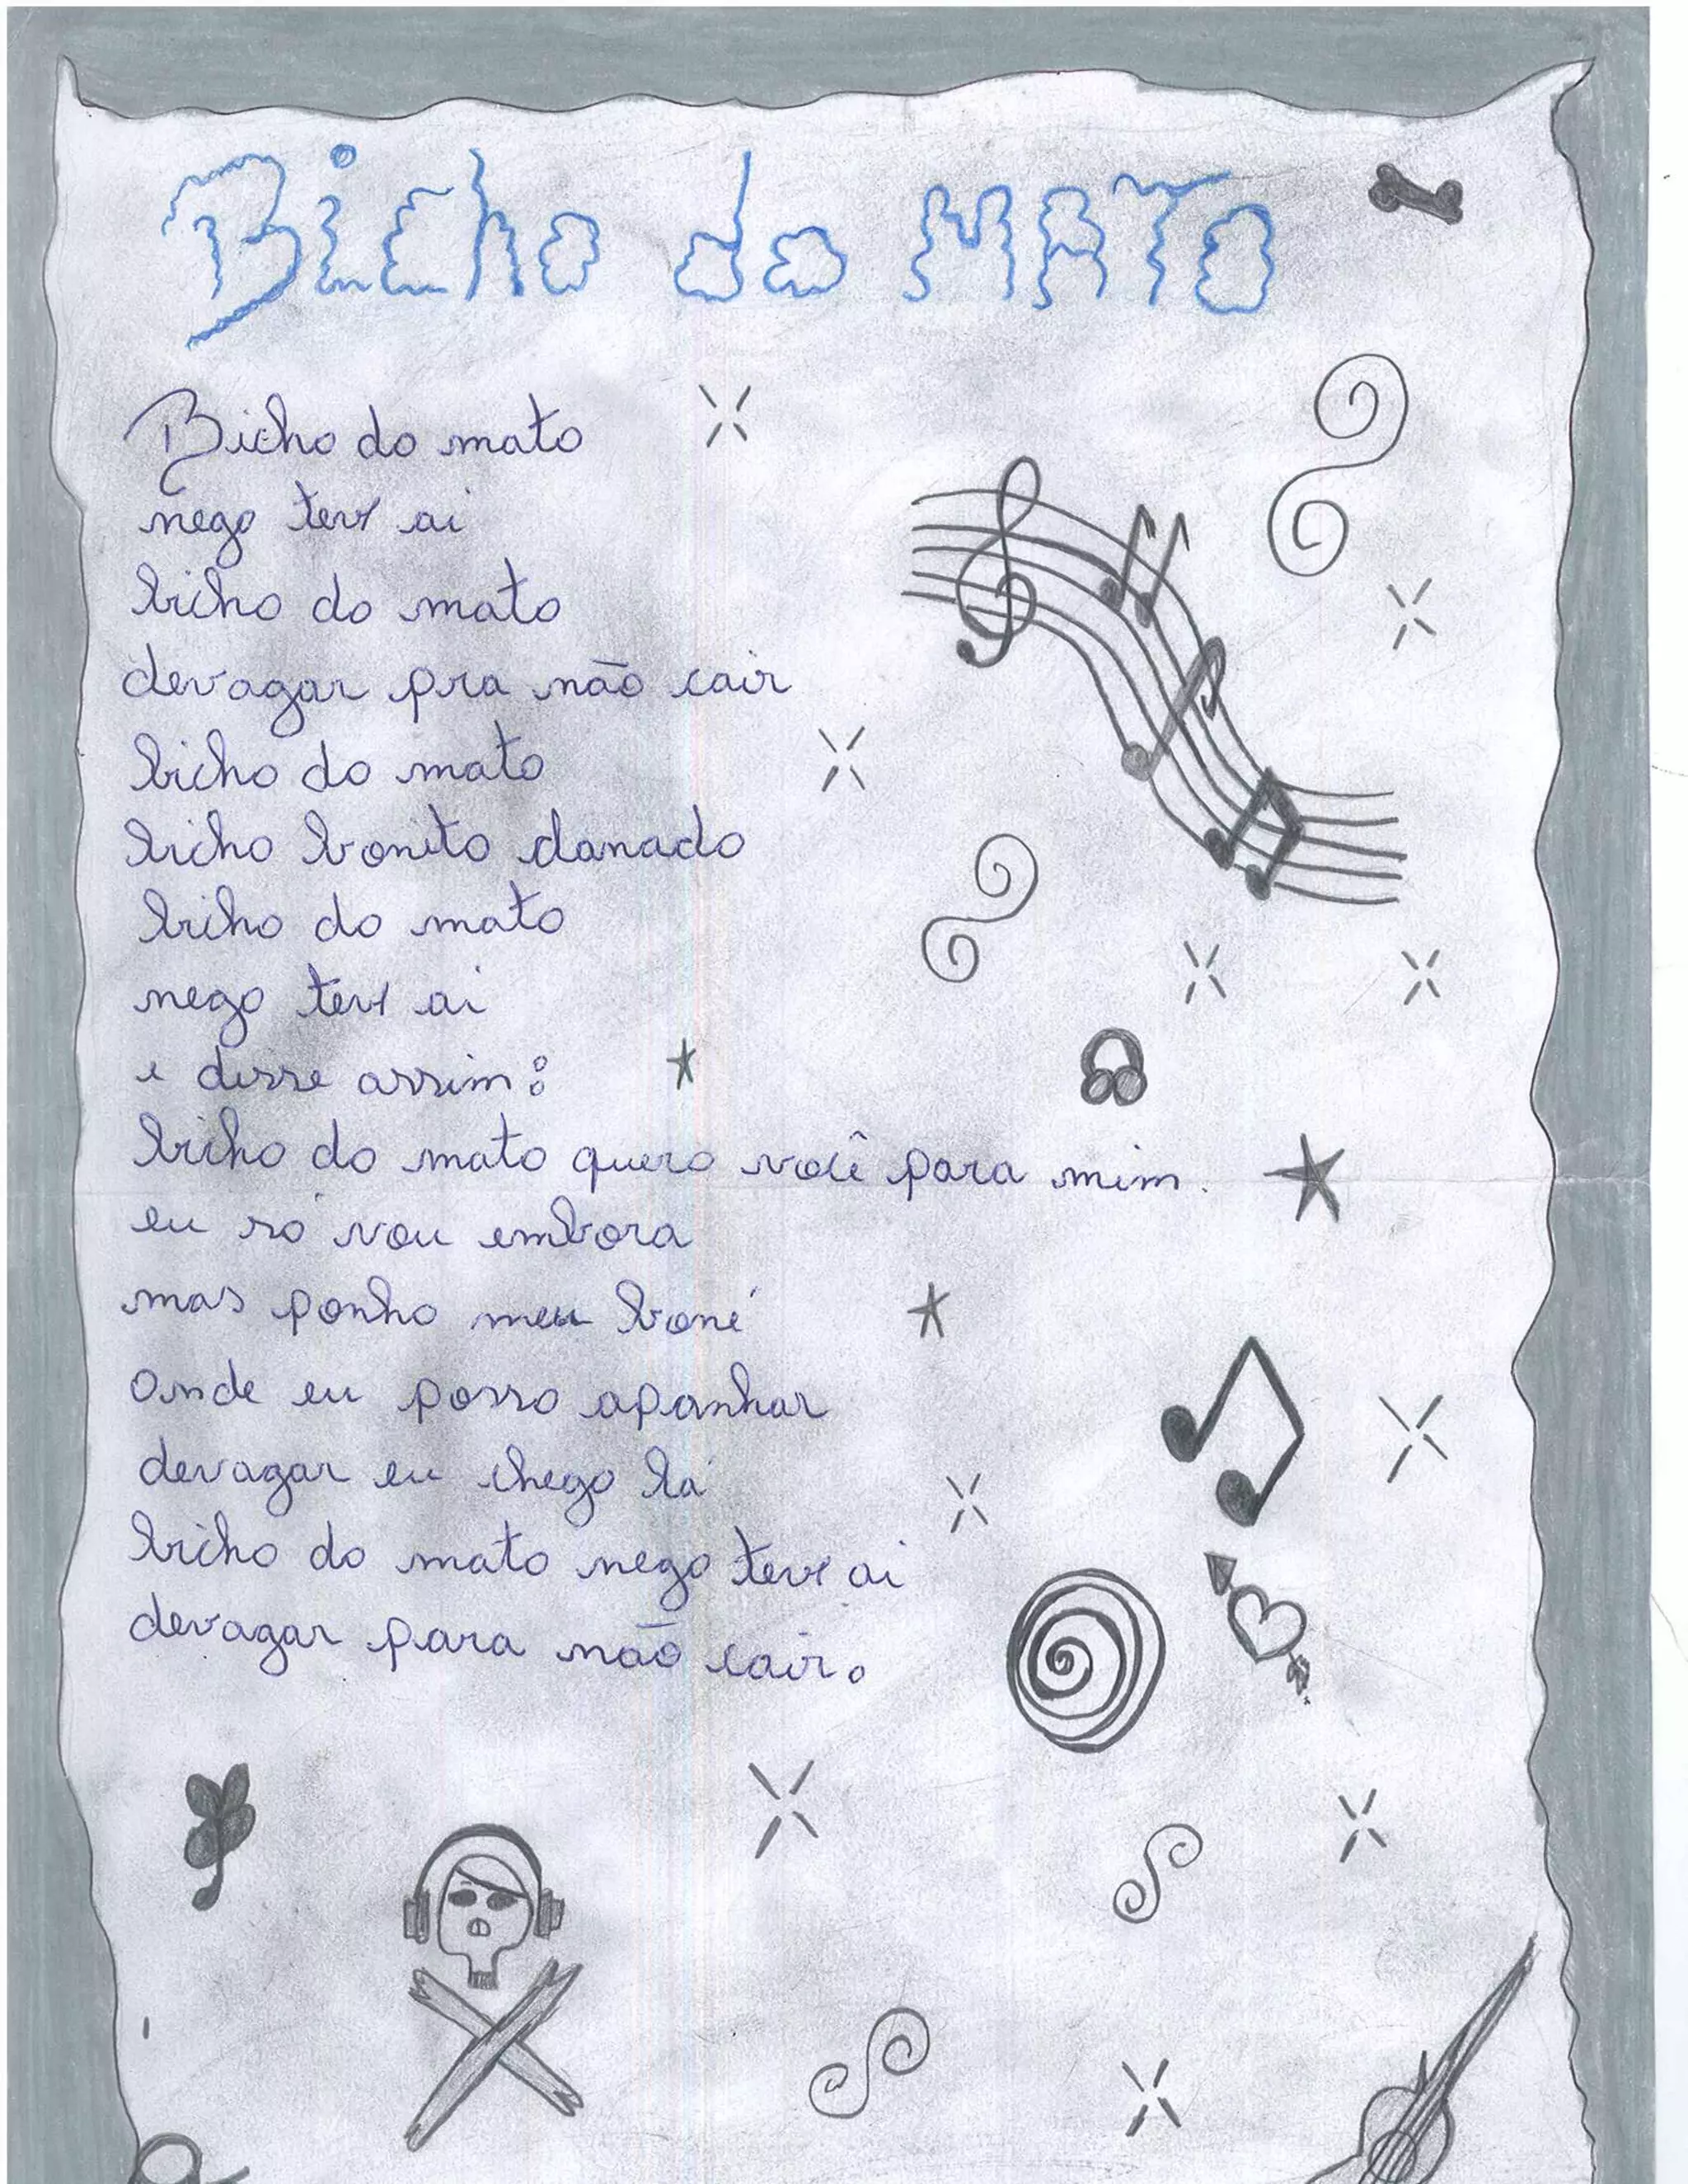 Bicho do MATO
Bicho do mato
nego teve ai
bicho do mato
devagar pra não cair
bicho do mato
bicho bonito danado
bicho do mato
nego teve ai
e disse assim:
bicho do mato quero você para mim.
eu só vou embora
mas ponho meu boné
onde eu posso apanhar
devagar eu chego lá
bicho do mato nego teve ai
devagar para não cair.